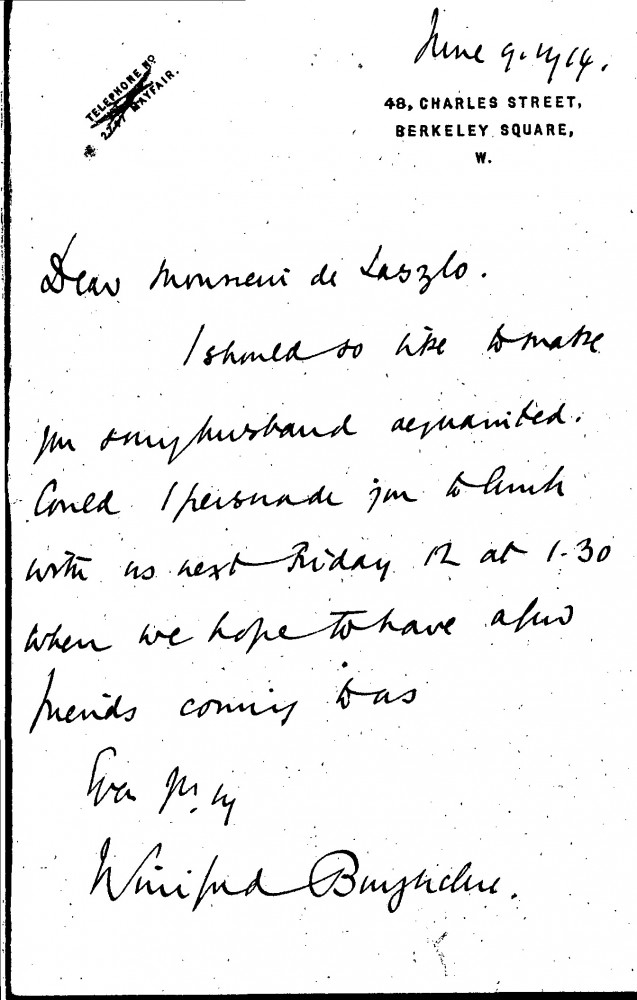 June 9. 1914.
TELEPHONE NO
MAYFAIR.
48, CHARLES STREET,
BERKELEY SQUARE,
W.
Dear Monsieur de Laszlo.
I should so like to make
you & my husband acquainted.
Could I persuade you to lunch
with us next Friday 12 at 1-30
when we hope to have a few
friends coming to us
Winifred Burghclere.